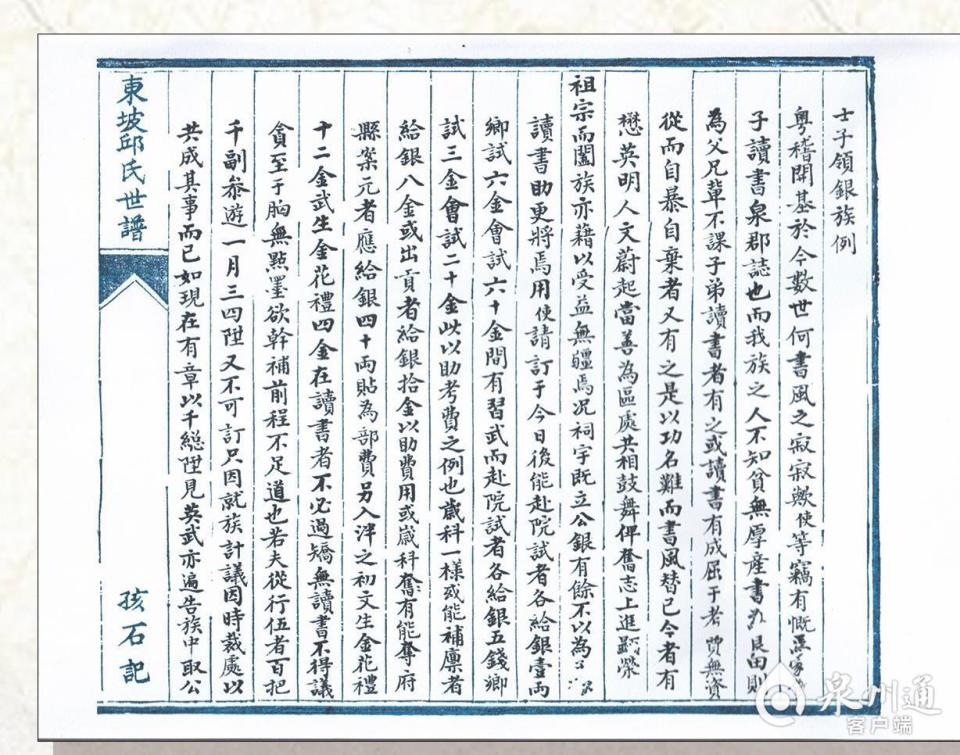 士子領銀族例
粵稽開基於今數世何書風之寂寂歟使等竊有慨焉家
子讀書泉郡誌也而我族之人不知貧無厚產書為良田則
為父兄軰不課子弟讀書者有之或讀書有成屈于考費無資
從而自暴自棄者又有之是以功名難而書風替已今者有
懋英明人文蔚起當善為區處共相鼓舞俾奮志上進顯榮
祖宗而闔族亦藉以受益無疆焉况祠宇既立公銀有餘不以為
讀書助更將焉用使請訂于今日後能赴院試者各給銀壹両
鄉試六金會試六十金間有習武而赴院試者各給銀五錢鄉
試三金會試二十金此以助考費之例也歲科一様或能補廩者
給銀八金或出貢者給銀拾金以助費用或歲科奪有能奪府
縣案元者應給銀四十両貼為部費另入泮之初文生金花禮
十二金武生金花禮四金在讀書者不必過矯無讀書不得議
貪至于胸無點墨欲幹補前程不足道也若夫從行伍者百把
千副叅遊一月三四陞又不可訂只因就族計議因時裁處以
共成其事而已如現在有章以千總陞見英武亦遍告族中取公
東坡邱氏世譜
孩石記
泉州通
客户端